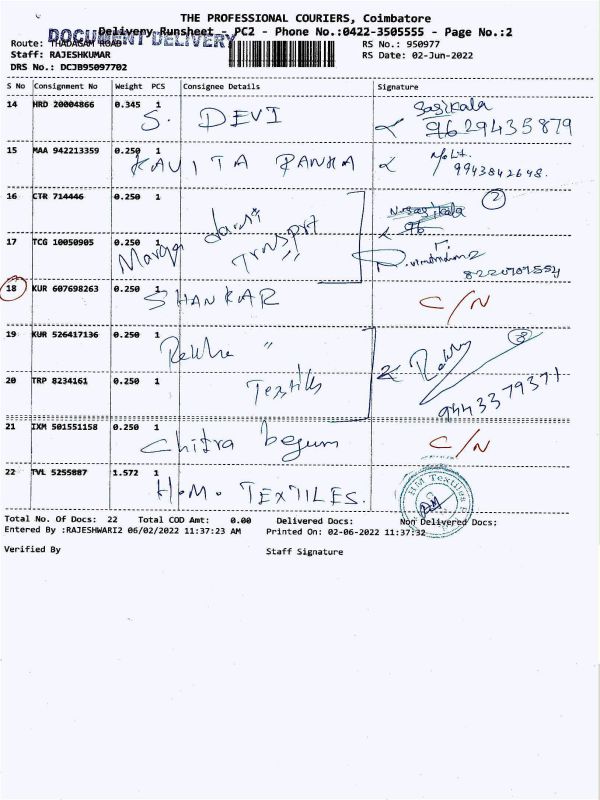 THE PROFESSIONAL COURIERS, Coimbatore
Delivery Runsheet - PC2 - Phone No.:0422-3505555 - Page No.:2
DOCUMENT DELIVERY
Route: THADAGAM ROAD
RS No.: 950977
Staff: RAJESHKUMAR
RS Date: 02-Jun-2022
DRS No.: DCJB95097702
S No Consignment No Weight PCS Consignee Details Signature
14 HRD 20004866 0.345 1 S. DEVI Sasikala
9629435879
15 MAA 942213359 0.250 1 KAVITA RANKA
9943842648.
16 CTR 714446 0.250 1 2
17 TCG 10050905 0.250 1
8220707554
18 KUR 607698263 0.250 1 SHANKAR C/N
19 KUR 526417136 0.250 1 Rekha "
20 TRP 8234161 0.250 1 Textiles 9443379371
21 IXM 501551158 0.250 1 Chitra begum C/N
22 TVL 5255887 1.572 1 H.M. TEXTILES. HM Textiles
Total No. Of Docs: 22 Total COD Amt: 0.00 Delivered Docs: Non Delivered Docs:
Entered By :RAJESHWARI2 06/02/2022 11:37:23 AM Printed On: 02-06-2022 11:37:32
Verified By Staff Signature